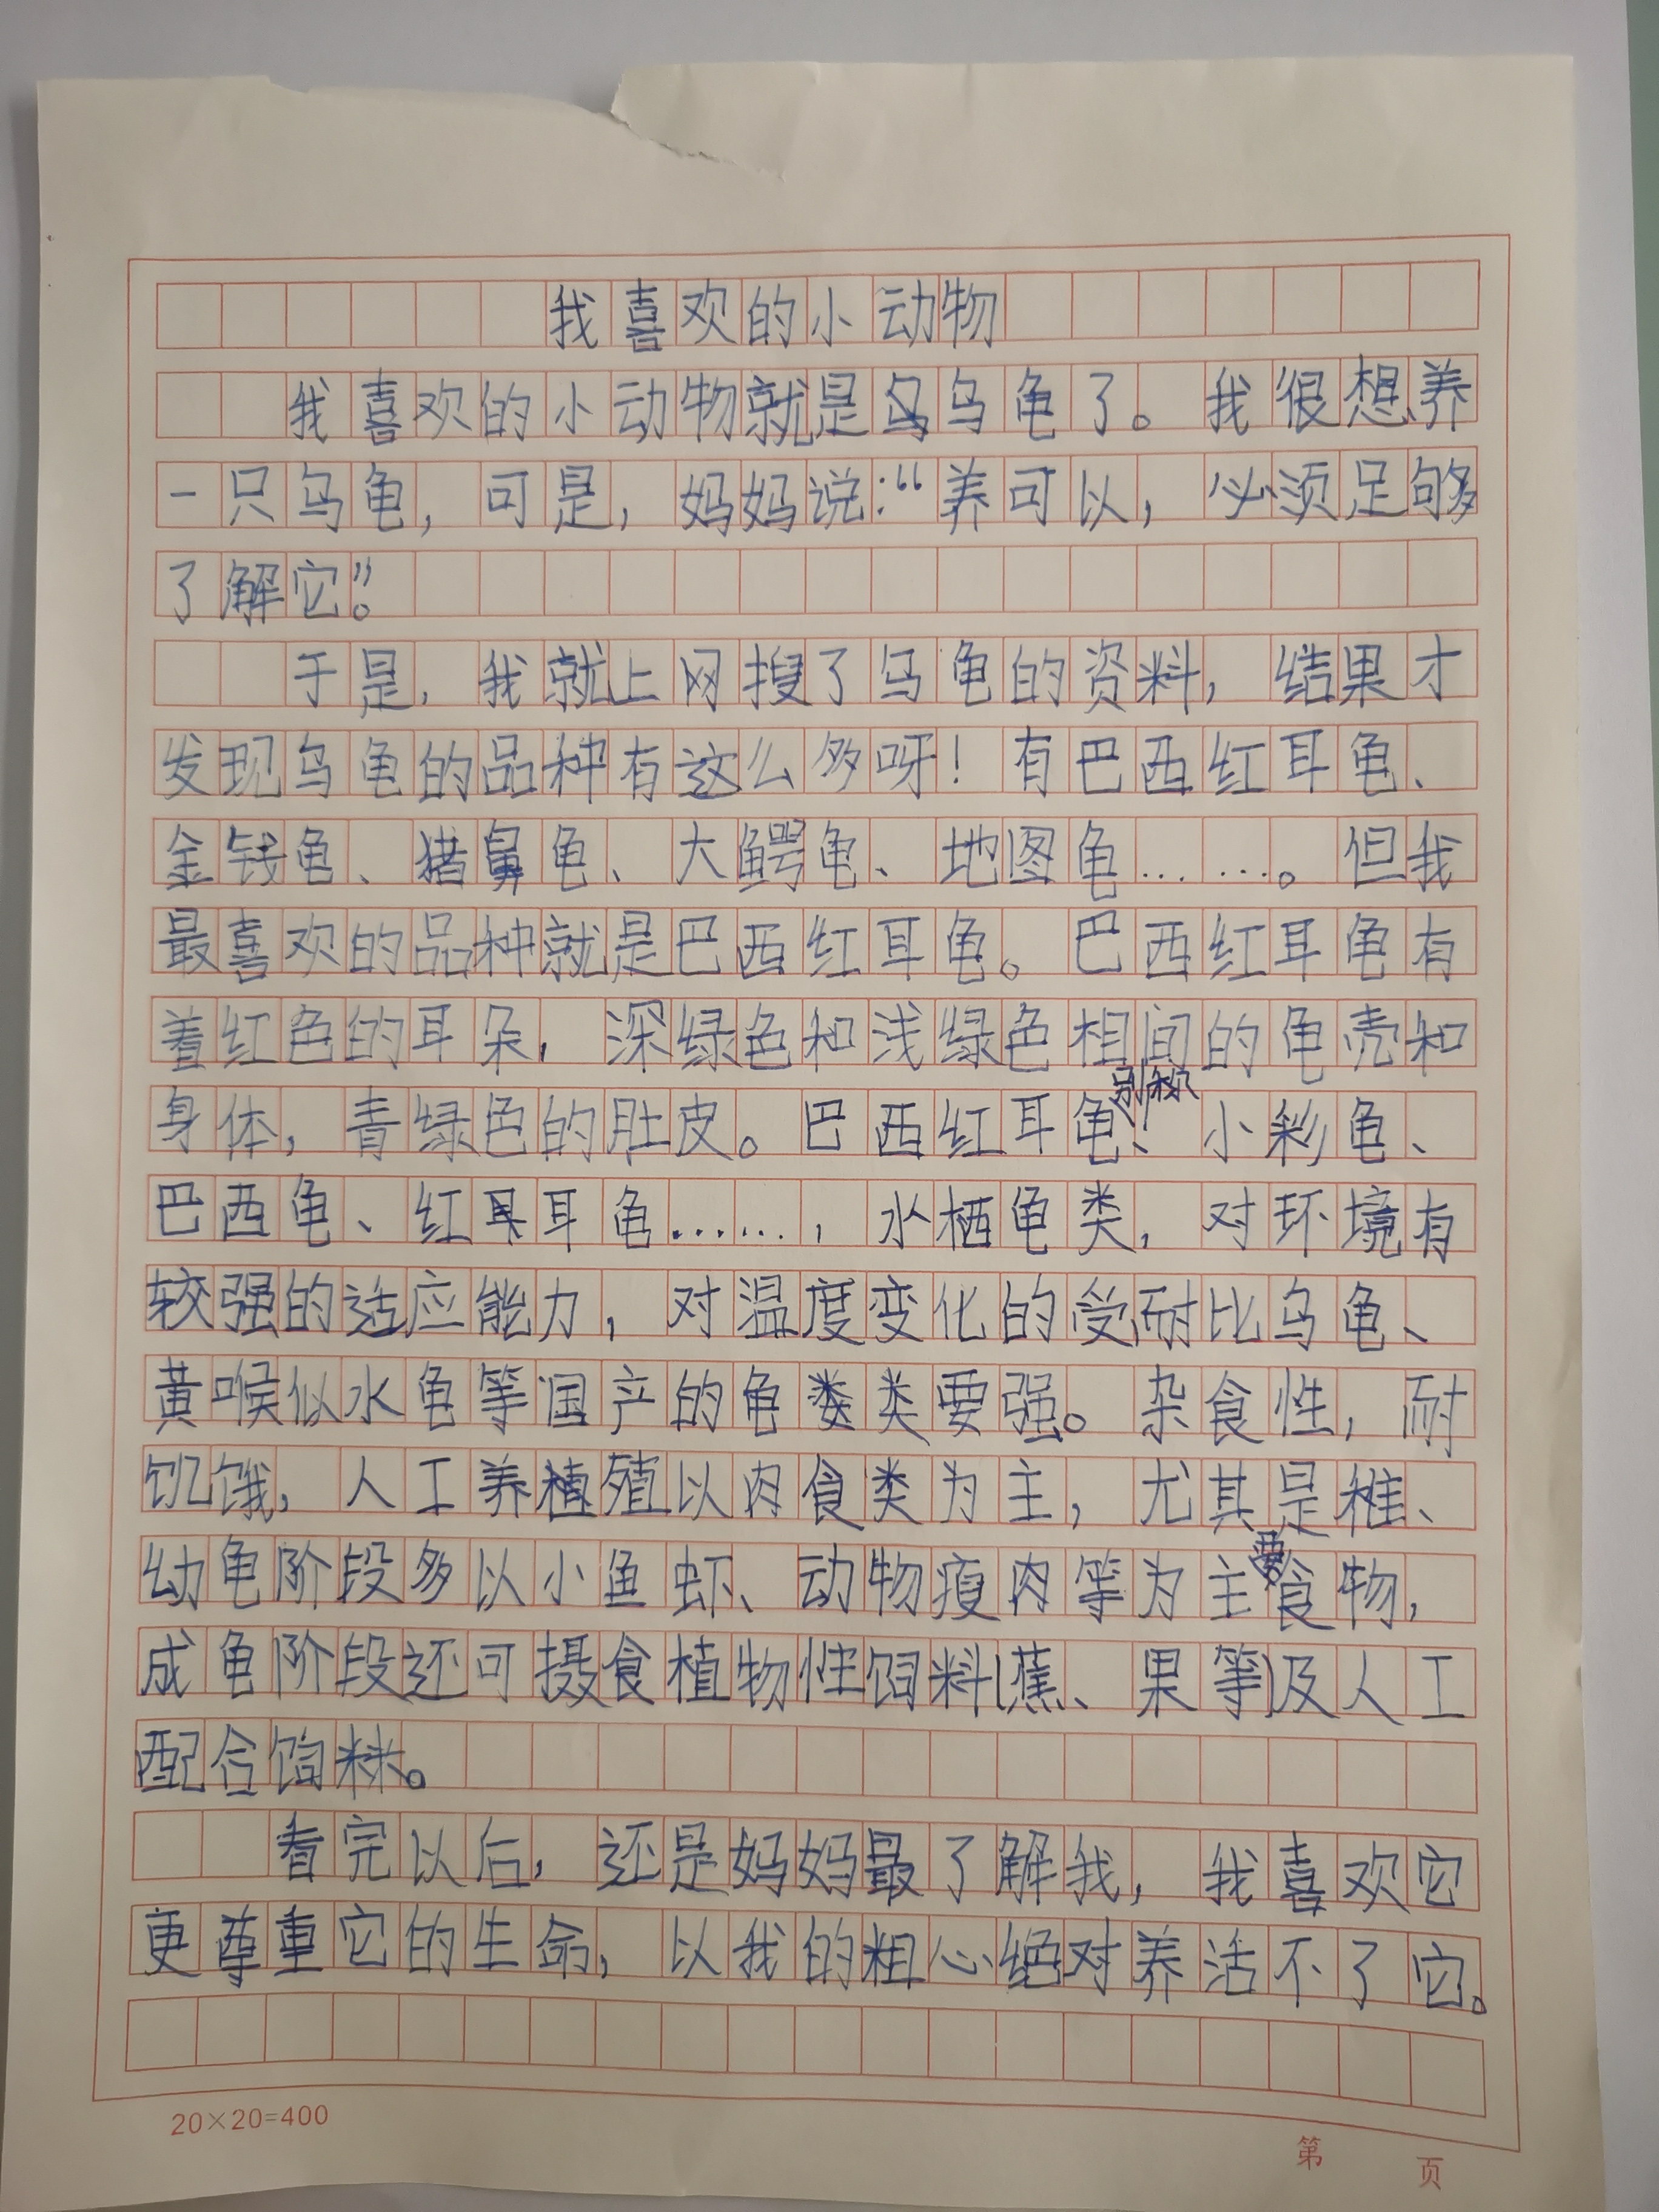 我喜欢的小动物
我喜欢的小动物就是乌龟了。我很想养
一只乌龟，可是，妈妈说：“养可以，必须足够
了解它”。
于是，我就上网搜了乌龟的资料，结果才
发现乌龟的品种有这么多呀！有巴西红耳龟、
金钱龟、猪鼻龟、大鳄龟、地图龟……。但我
最喜欢的品种就是巴西红耳龟。巴西红耳龟有
着红色的耳朵，深绿色和浅绿色相间的龟壳和
身体，青绿色的肚皮。巴西红耳龟别称、小彩龟、
巴西龟、红耳龟……，水栖龟类，对环境有
较强的适应能力，对温度变化的受耐比乌龟、
黄喉似水龟等国产的龟类要强。杂食性，耐
饥饿，人工养殖以肉食类为主，尤其是稚、
幼龟阶段多以小鱼虾、动物瘦肉等为主要食物，
成龟阶段还可摄食植物性饲料(蕉、果等)及人工
配合饲料。
看完以后，还是妈妈最了解我，我喜欢它
更尊重它的生命，以我的粗心绝对养活不了它。
20×20=400
第 页